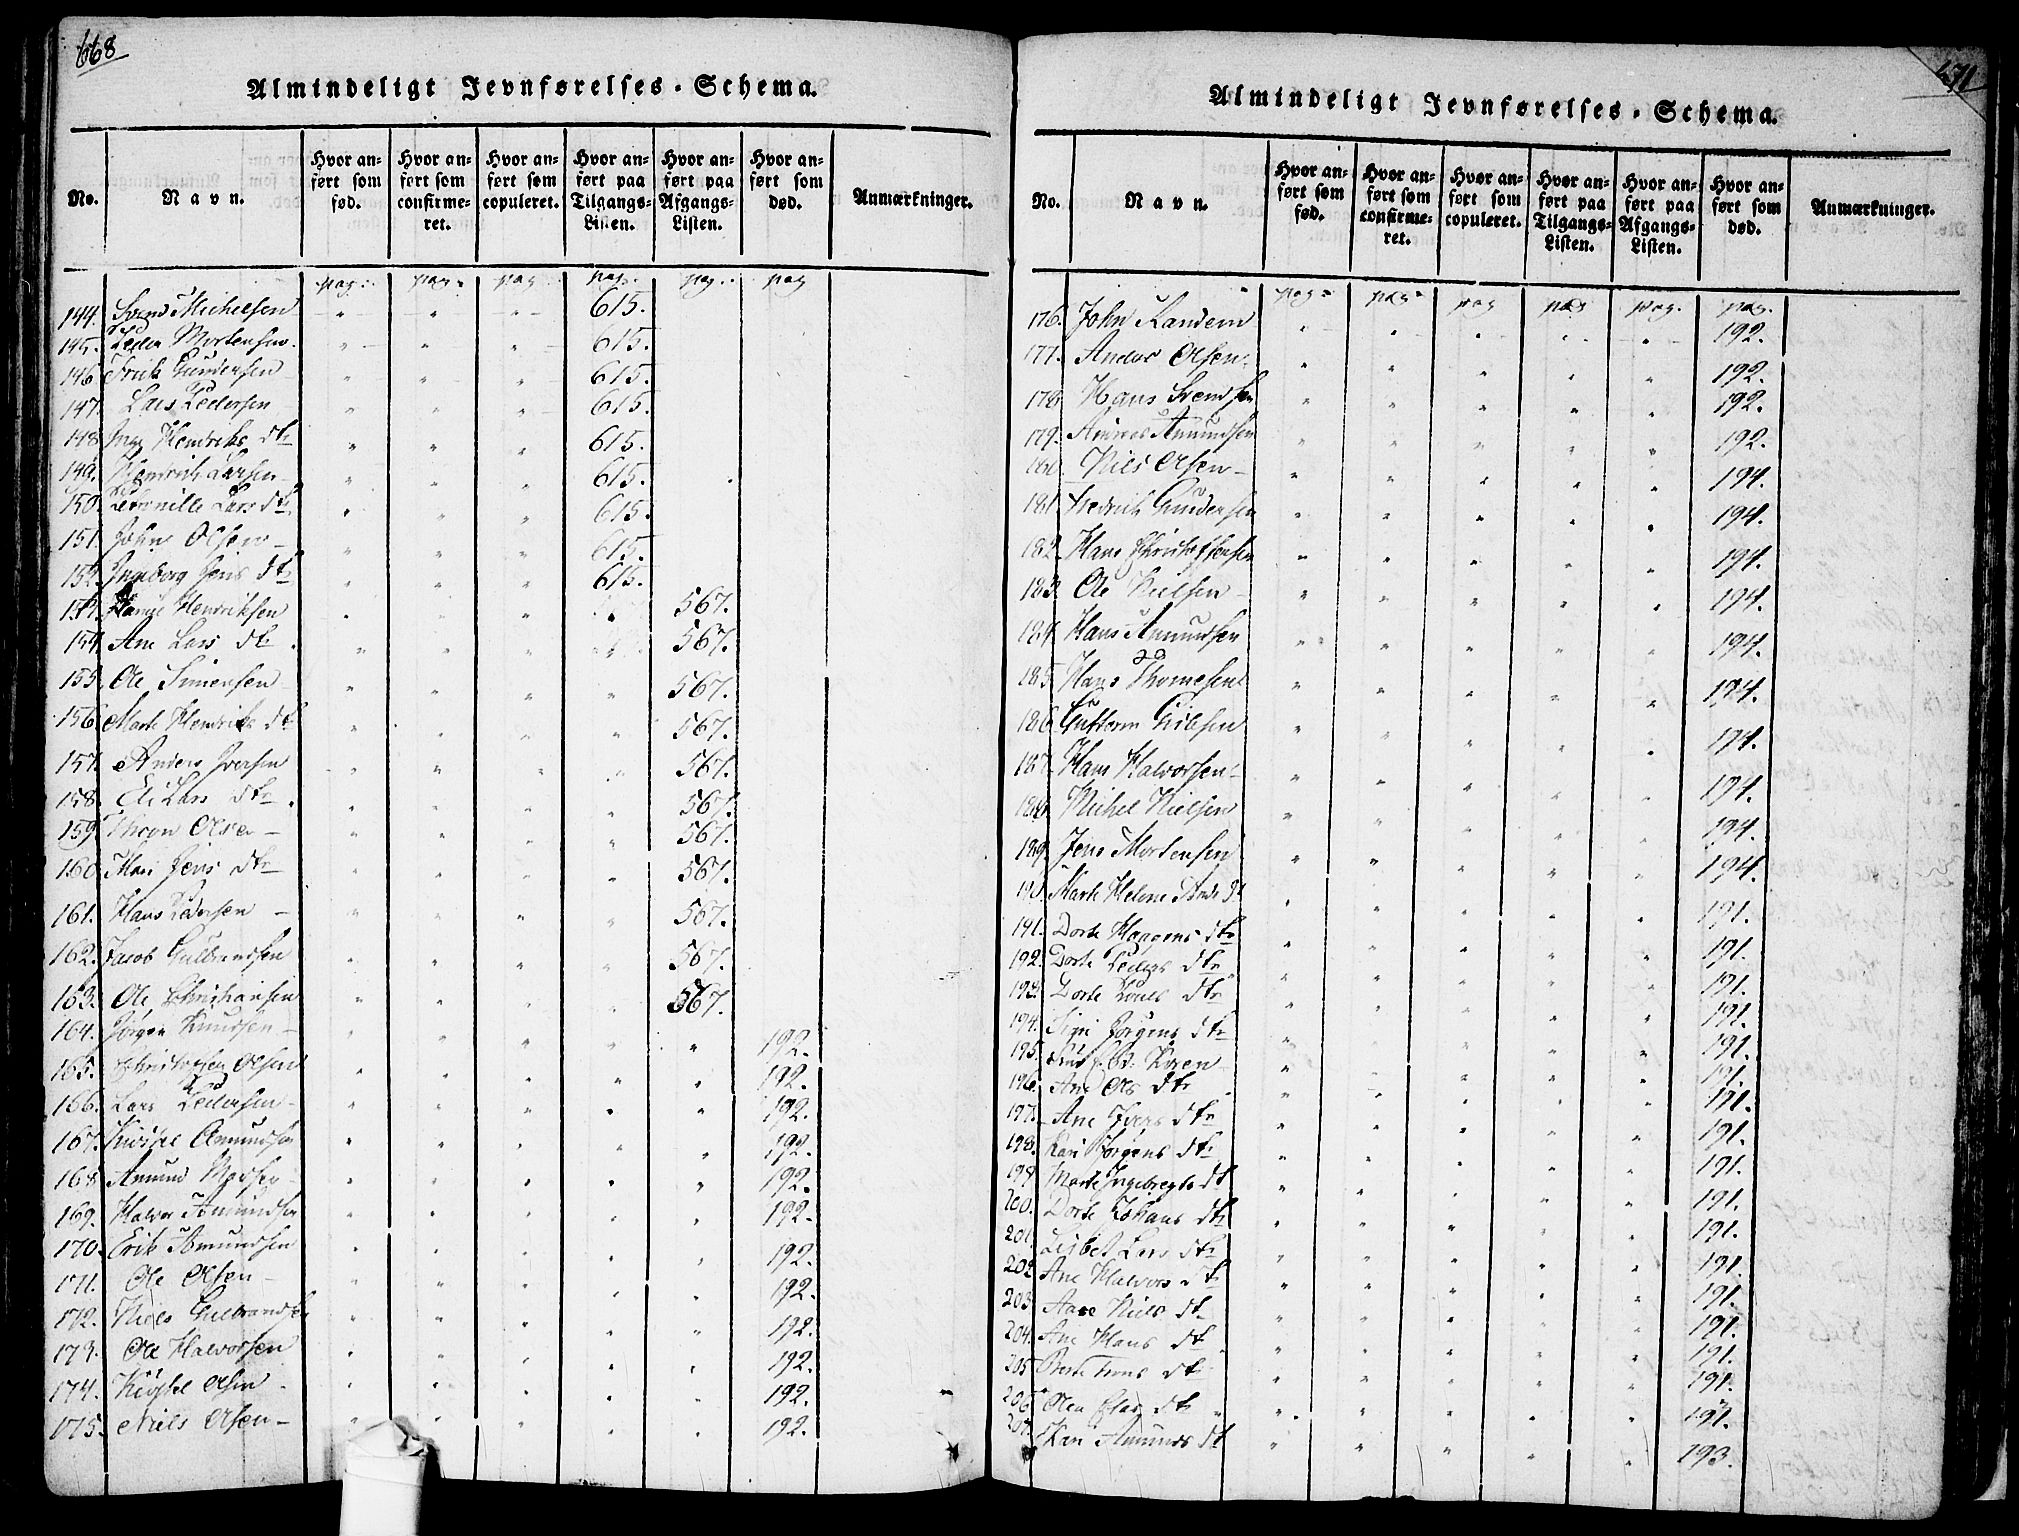 668
Almindeligt Jevnførelses-Schema.
No.
Navn.
Hvor anført som fød.
Hvor anført som confirmeret.
Hvor anført som copuleret.
Hvor anført paa Tilgangs-Listen.
Hvor anført paa Afgangs-Listen.
Hvor anført som død.
Anmærkninger.
pag. pag. pag. pag. pag. pag
144. Svend Michelsen 615.
145. Peder Mortensen 615.
146. Gundersen 615.
147. Lars Pedersen 615.
148. Hendriks dtr 615.
149. Hendrich Larsen 615.
150. Petronille Lars dtr 615.
151. John Olsen 615.
152. Ingeborg Jens dtr 615.
153. Henriksen 567.
154. Ane Lars dtr 567.
155. Ole Simensen 567.
156. Marte Hendriks dtr 567.
157. Anders Iversen 567.
158. Eli Lars dtr 567.
159. 567.
160. Mari Jens dtr 567.
161. Hans Pedersen 567.
162. Jacob Gulbrandsen 567.
163. Ole Christiansen 567.
164. Jørgen Knudsen 192.
165. Christopher Olsen 192.
166. Lars Pedersen 192.
167. Amundsen 192.
168. Amund 192.
169. Halvor Amundsen 192.
170. Erik Amundsen 192.
171. Ole Olsen 192.
172. Niels Gulbrandsen 192.
173. Ole Halvorsen 192.
174. Olsen 192.
175. Niels Olsen 192.
671
Almindeligt Jevnførelses-Schema.
No.
Navn.
Hvor anført som fød.
Hvor anført som confirmeret.
Hvor anført som copuleret.
Hvor anført paa Tilgangs-Listen.
Hvor anført paa Afgangs-Listen.
Hvor anført som død.
Anmærkninger.
pag. pag. pag pag pag. pag.
176. John Randem 192.
177. Anders Olsen 192.
178. Hans Svendsen 192.
179. Andreas Amundsen 192.
180. Nils Olsen 194.
181. Fredrich Gundersen 194.
182. Hans Christophersen 194.
183. Ole Nielsen 194.
184. Hans Amundsen 194.
185. Hans Thomesen 194.
186. Guttorm 194.
187. Hans Halvorsen 194.
188. Michel Nielsen 194.
189. Jens Mortensen 194.
190. Marte Helene 191.
191. Dorte Haagens dtr 191.
192. Dorte Peders dtr 191.
193. Dorte dtr 191.
194. Siri Jørgens dtr 191.
195. 191.
196. Ane Ols dtr 191.
197. Ane Ivers dtr 191.
198. Kari Jørgens dtr 191.
199. Marte Ingebregts dt 191.
200. Dorte Johans dtr 191.
201. Lisbet Lars dtr 191.
202. Ane Halvors dtr 191.
203. Aase Niels dt 191.
204. Ane Hans dtr 191.
205. dtr 191.
206. dtr 191.
207. Kari Amunds dt 193.